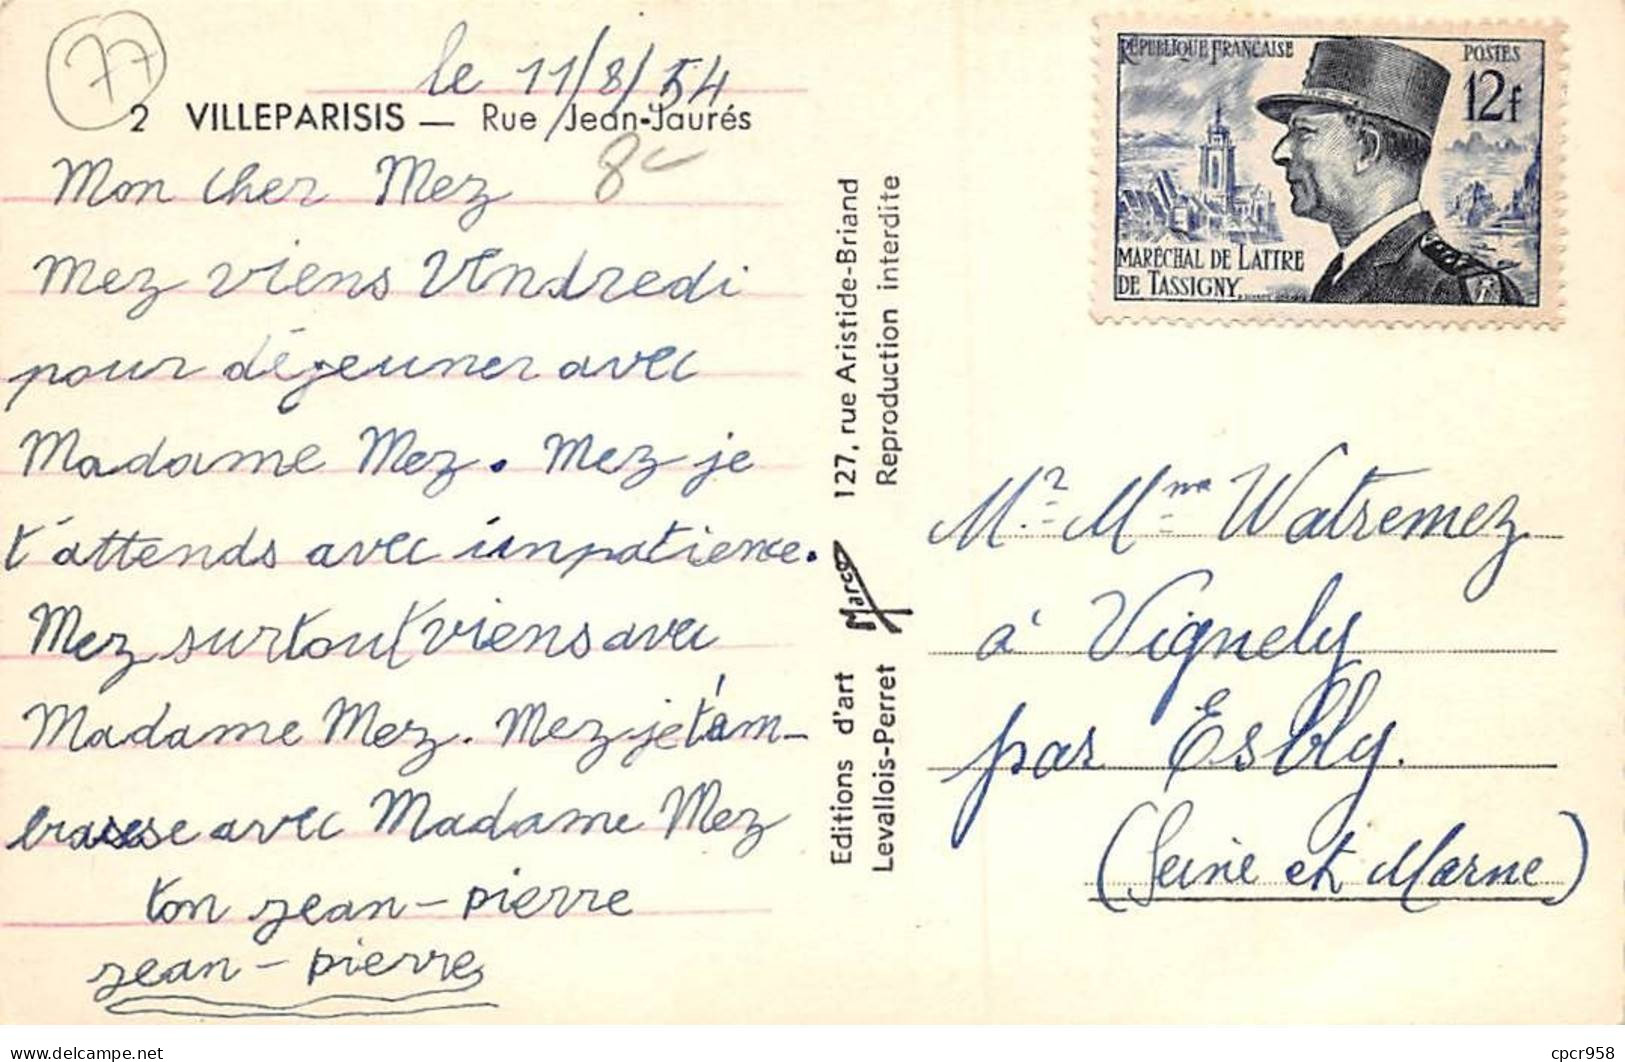 77
le 11/8/54
2 VILLEPARISIS — Rue Jean-Jaurés
8
Mon cher Mez
Mez viens Vendredi
pour déjeuner avec
Madame Mez. Mez je
t'attends avec inpatience.
Mez surtout viens avec
Madame Mez. Mez je t'am-
brasse avec Madame Mez
ton jean-pierre
jean-pierre
Editions d'art Marco 127, rue Aristide-Briand
Levallois-Perret Reproduction interdite
RÉPUBLIQUE FRANÇAISE POSTES
12f
MARÉCHAL DE LATTRE
DE TASSIGNY
Mr Mme Watremez
à Vignely
par Esbly.
(Seine et Marne)
cpcr958